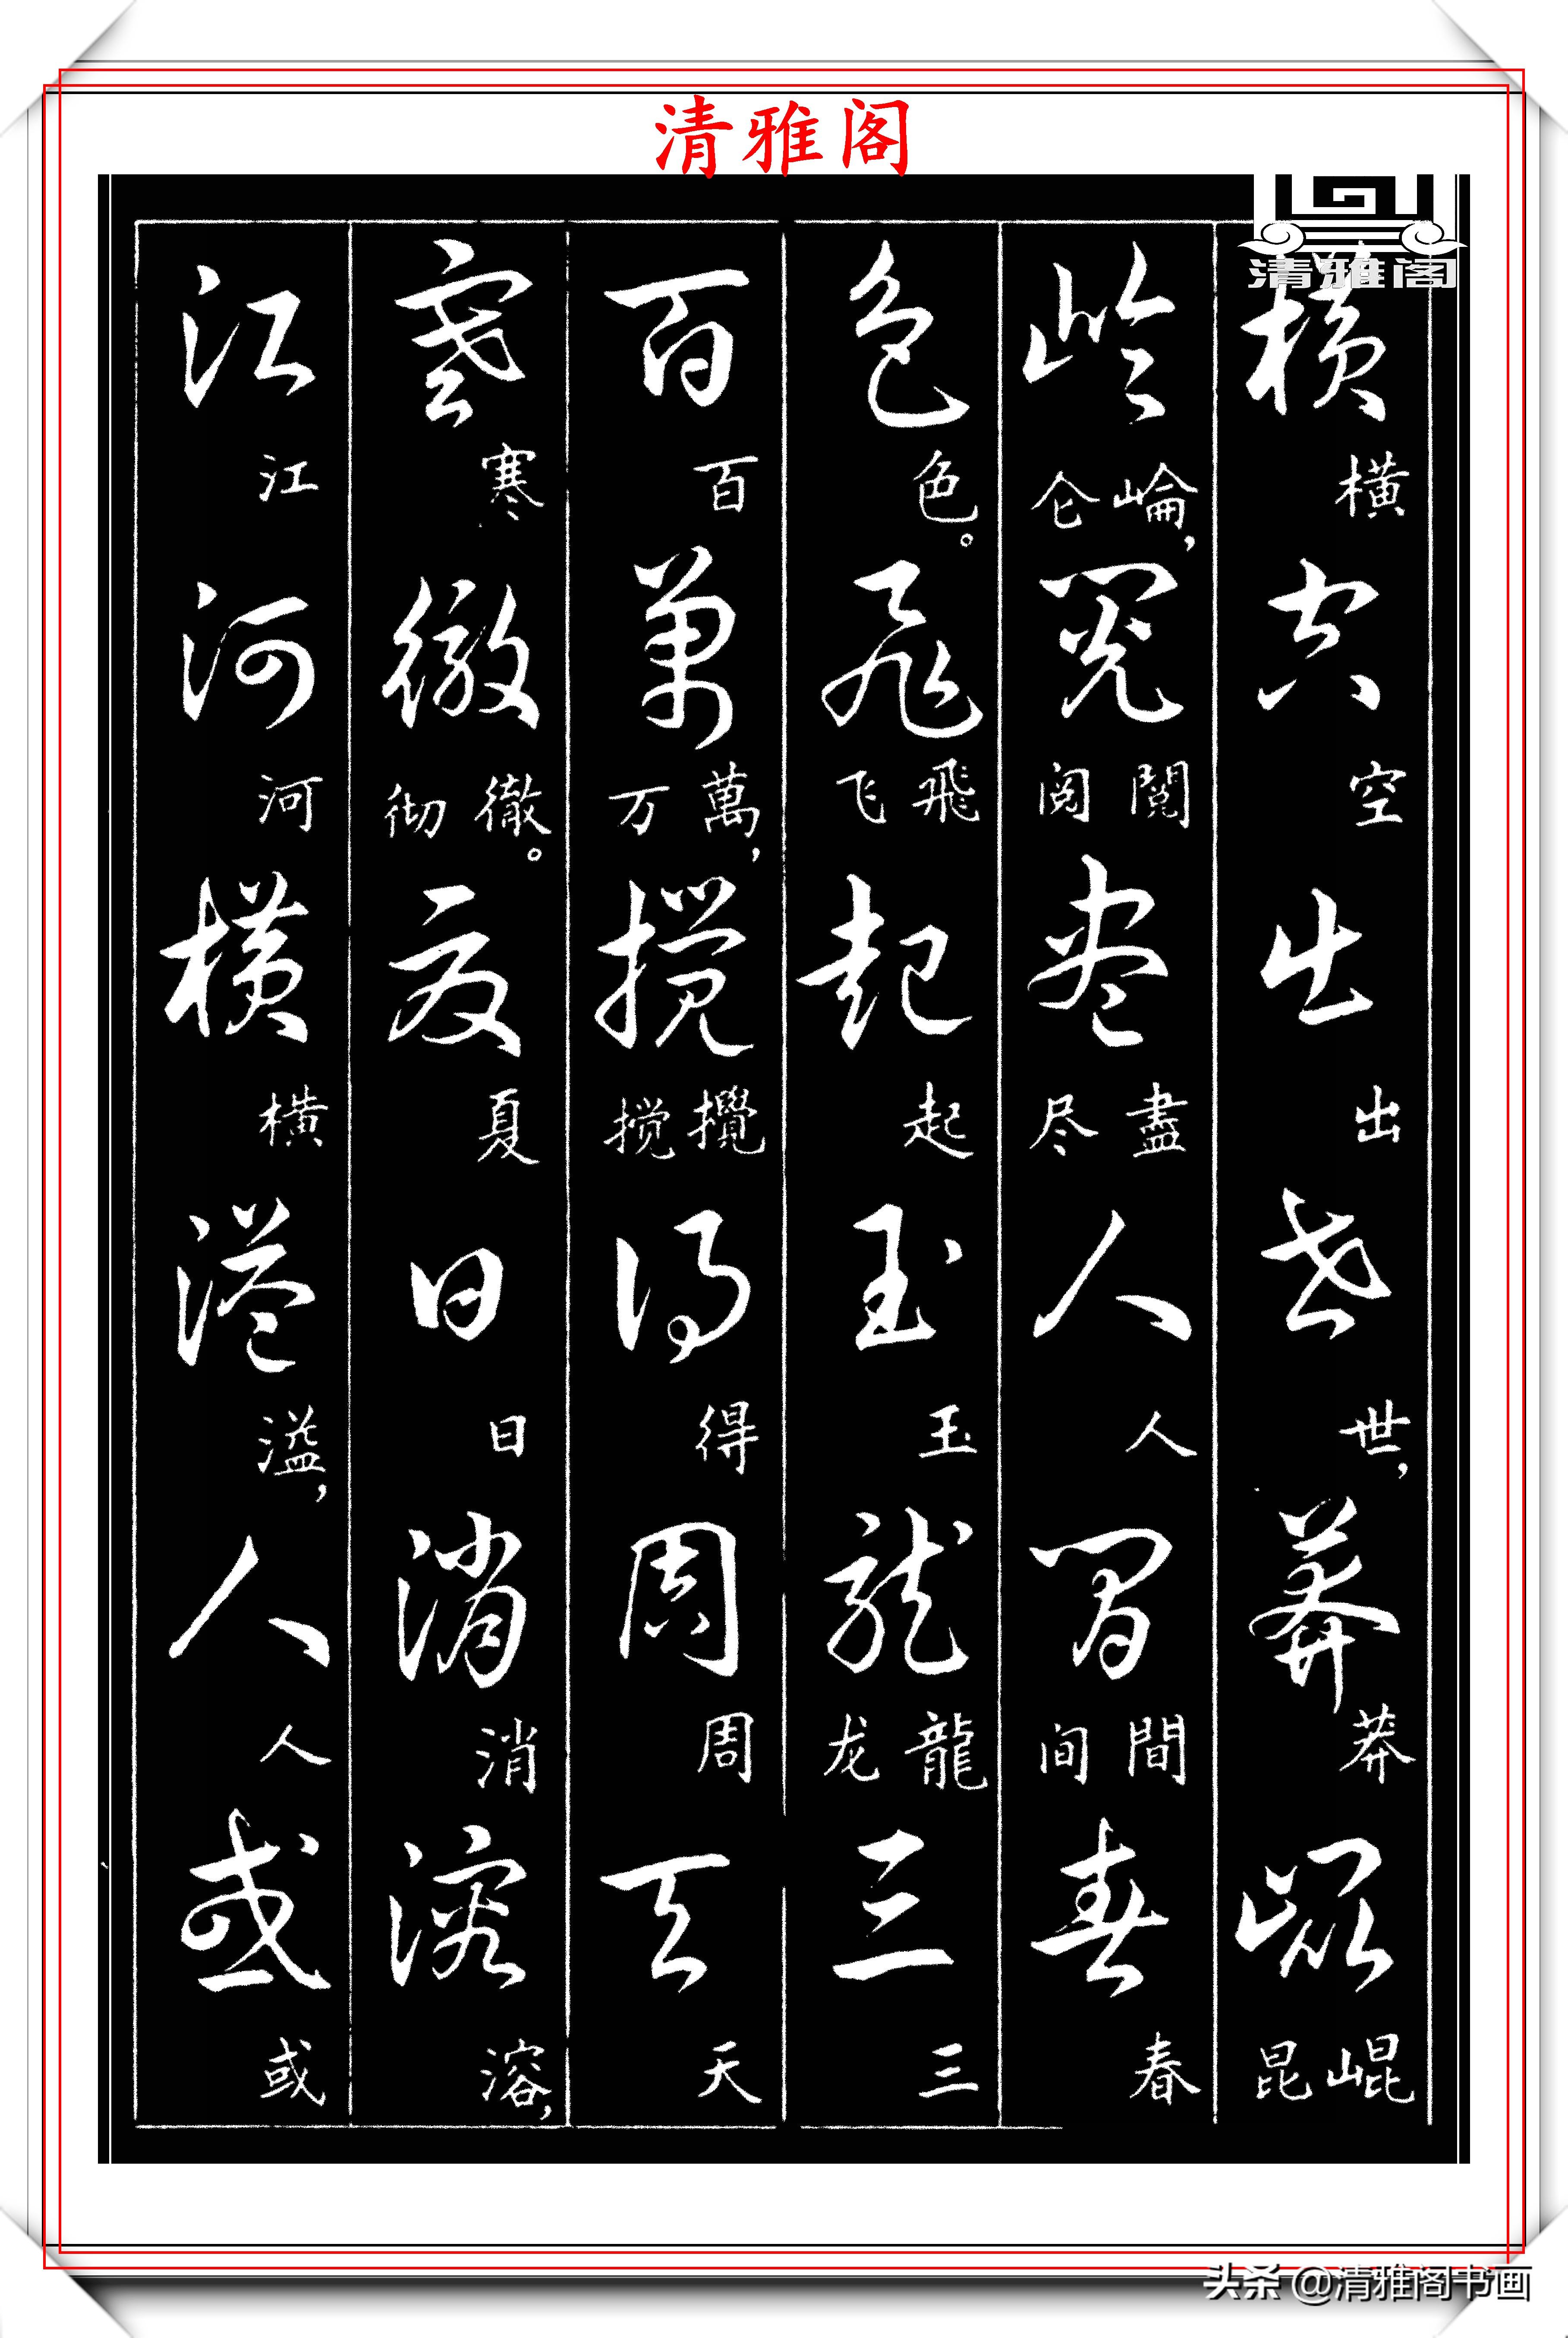 清雅阁
清雅阁
横空出世莽崐
横空出世，莽崐昆
崘閱盡人間春
崘仑，閱阅盡尽人間间春
色飛起玉龍三
色。飛飞起玉龍龙三
百萬攪得周天
百萬万，攪搅得周天
寒徹夏日消溶
寒徹彻。夏日消溶，
江河横溢人或
江河横溢，人或
头条 @清雅阁书画